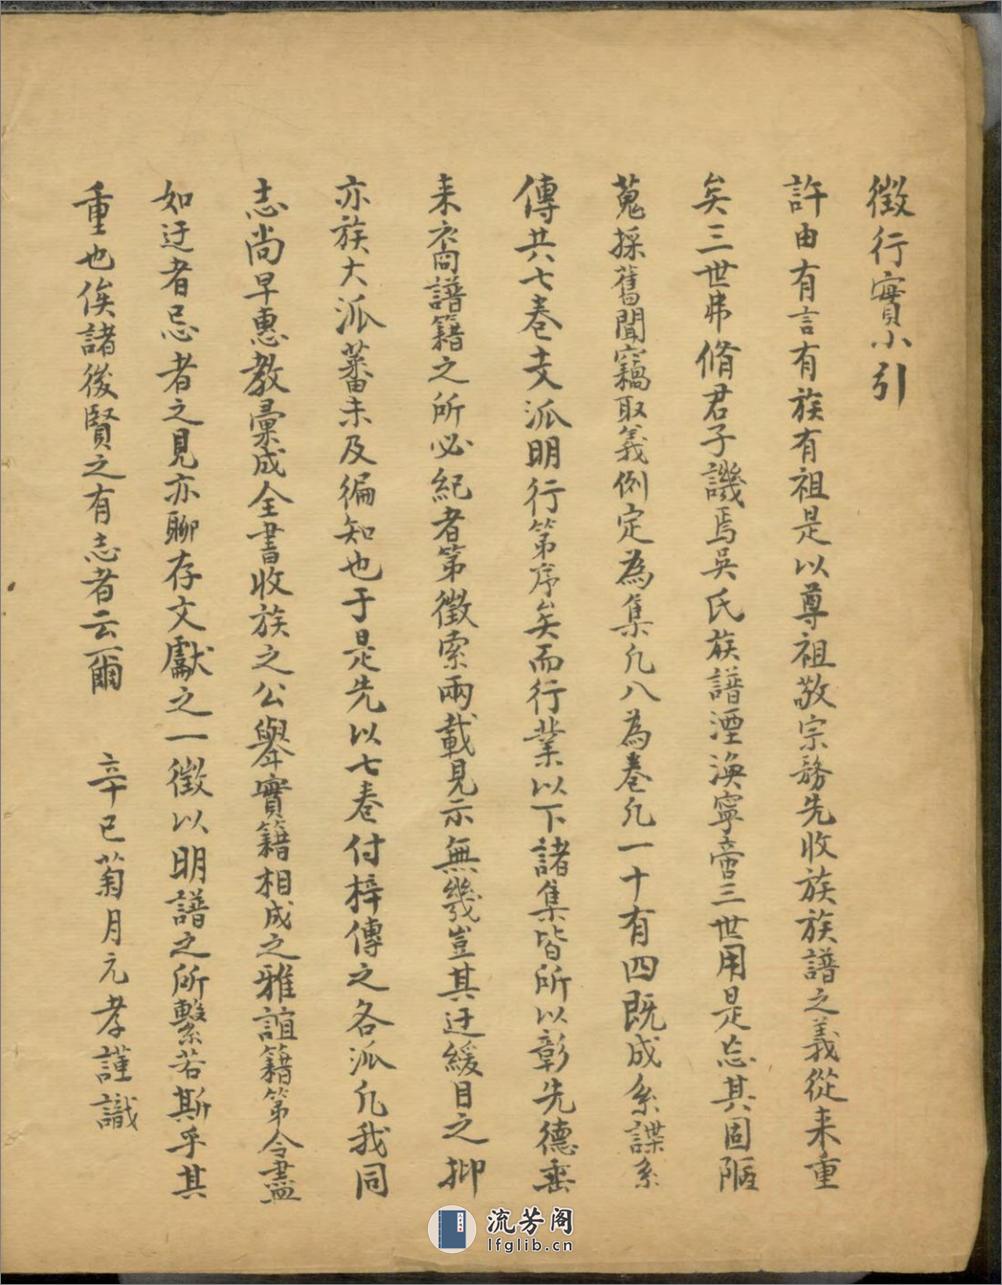 徵行實小引
許由有言有族有祖是以尊祖敬宗務先收族族譜之義從来重
矣三世弗脩君子譏焉吳氏族譜湮渙寧啻三世用是忘其固陋
蒐採舊聞竊取義例定為集凡八為卷凡一十有四既成系諜系
傳共七卷支派明行第序矣而行業以下諸集皆所以彰先德垂
来裔譜籍之所必紀者第徵索兩載見示無幾豈其迂緩目之抑
亦族大派蕃未及徧知也于是先以七卷付梓傳之各派凡我同
志尚早惠教彙成全書收族之公舉實籍相成之雅誼籍第令盡
如迂者忌者之見亦聊存文獻之一徵以明譜之所繫若斯乎其
重也俟諸後賢之有志者云爾 辛巳菊月元孝謹識
流芳阁
lfglib.cn